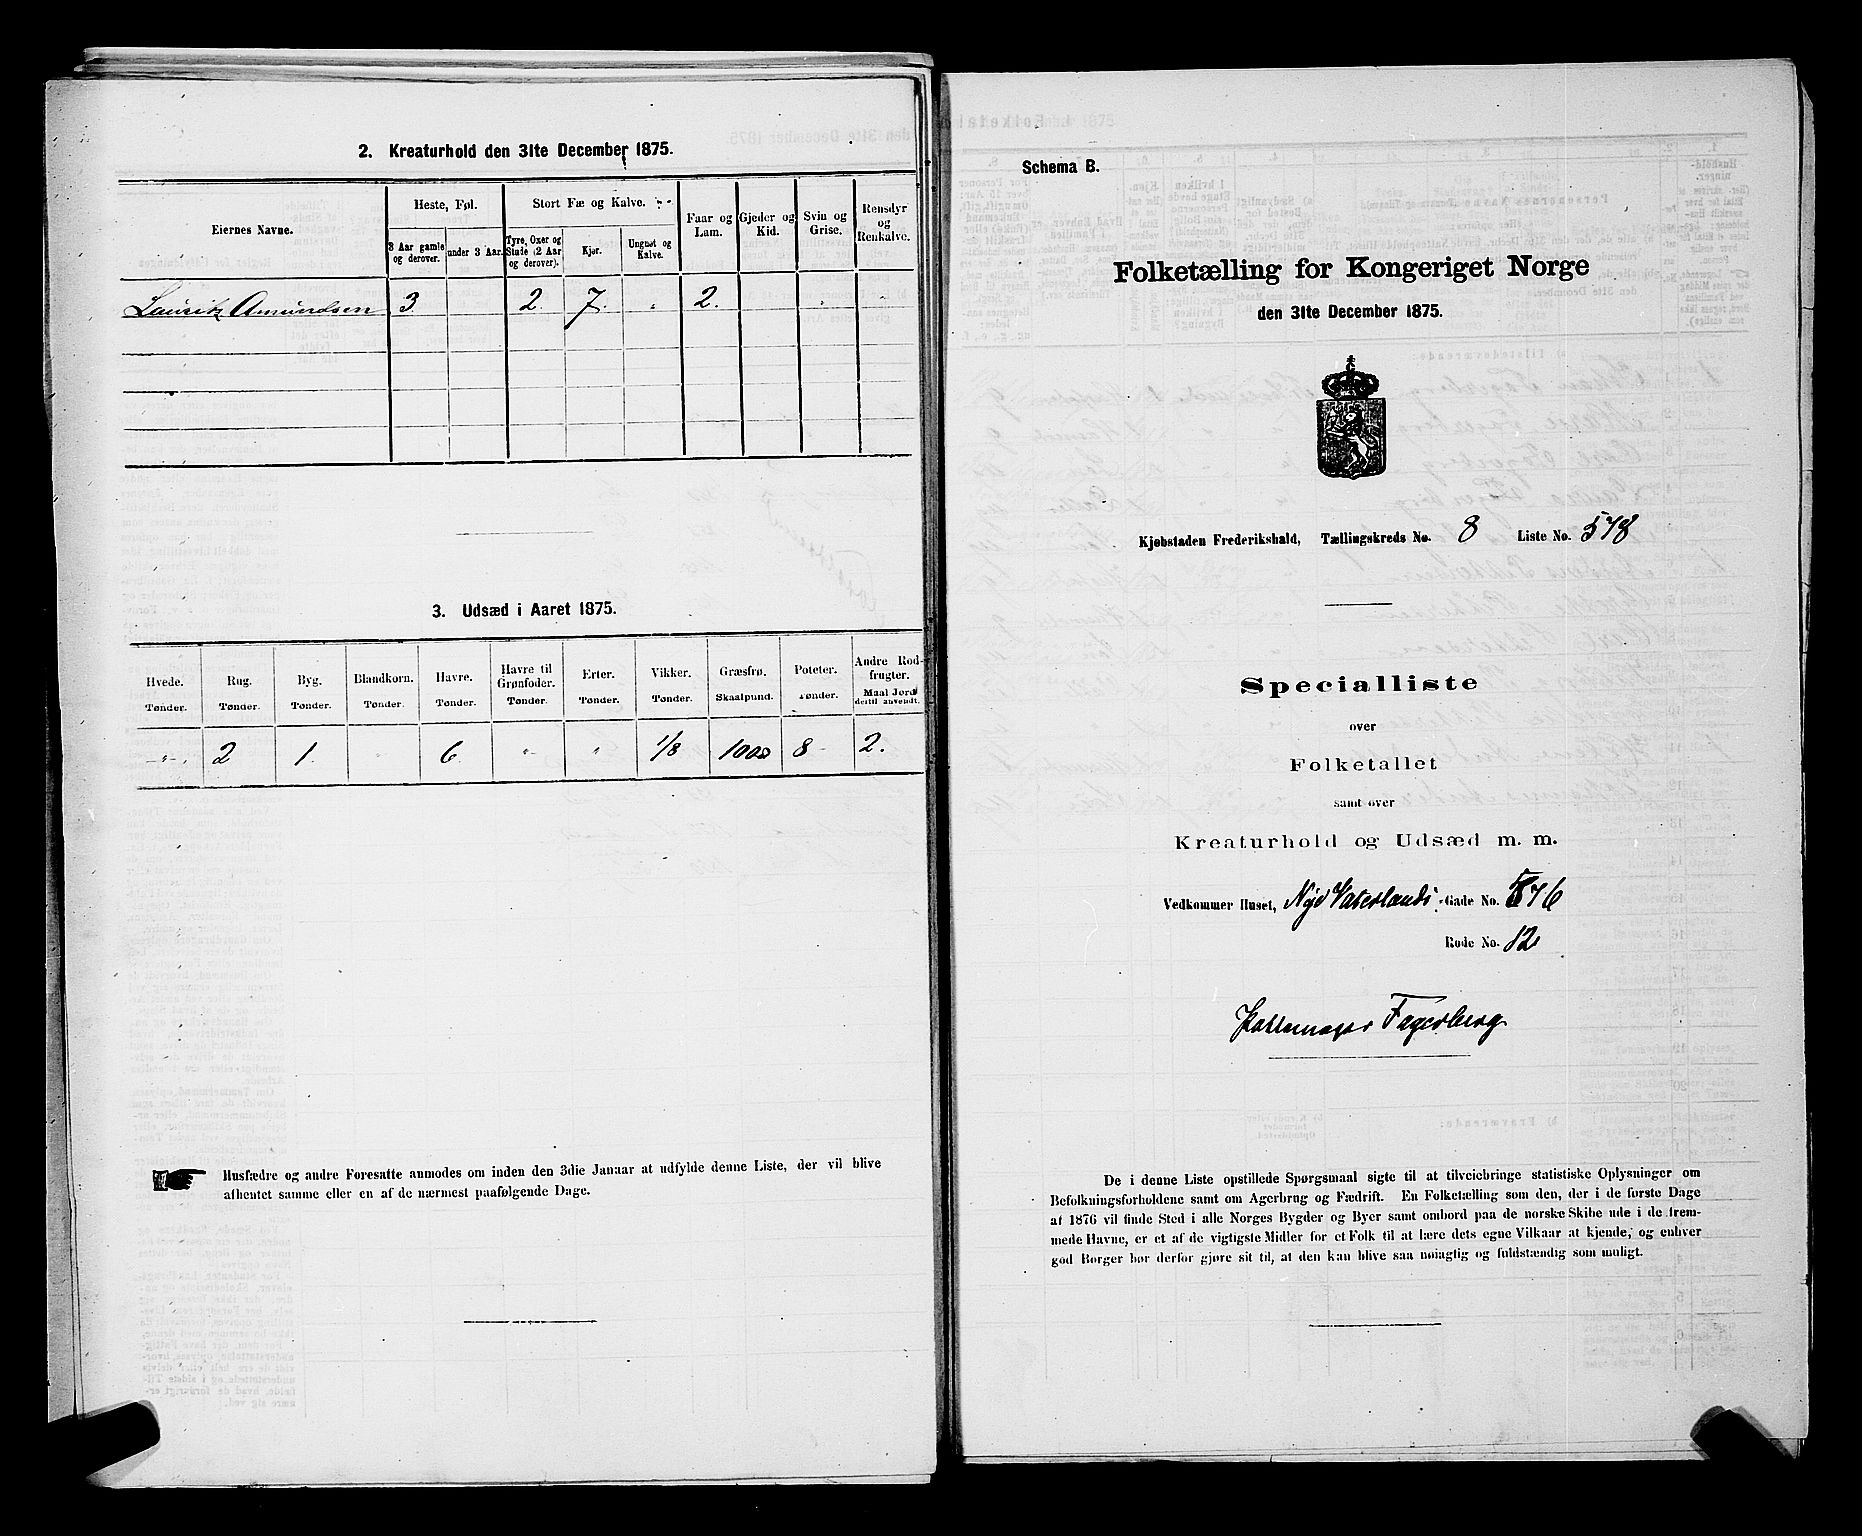 2. Kreaturhold den 31te December 1875.
Eiernes Navne.
Heste, Føl.
Stort Fæ og Kalve.
Faar og Lam.
Gjeder og Kid.
Svin og Grise.
Rensdyr og Renkalve.
3 Aar gamle og derover.
under 3 Aar.
Tyre, Oxer og Stude (2 Aar og derover).
Kjør.
Ungnøt og Kalve.
Lauritz Amundsen 3 2. 7. " 2. " "
3. Udsæd i Aaret 1875.
Hvede. Rug. Byg. Blandkorn. Havre. Havre til Grønfoder. Erter. Vikker. Græsfrø. Poteter. Andre Rodfrugter.
Tønder. Tønder. Tønder. Tønder. Tønder. Tønder. Tønder. Tønder. Skaalpund. Tønder. Maal Jord dertil anvendt.
-"- 2 1. " 6 " " 1/8 1000 8 2.
Husfædre og andre Foresatte anmodes om inden den 3die Januar at udfylde denne Liste, der vil blive
afhentet samme eller en af de nærmest paafølgende Dage.
Schema B.
Folketælling for Kongeriget Norge
den 31te December 1875.
Kjøbstaden Frederikshald, Tællingskreds No. 8 Liste No. 578
Specialliste
over
Folketallet
samt over
Kreaturhold og Udsæd m. m.
Vedkommer Huset, Nye Vaterlands-Gade No. 576
Rode No. 12
Pottemager Fagerberg
De i denne Liste opstillede Spørgsmaal sigte til at tilveiebringe statistiske Oplysninger om
Befolkningsforholdene samt om Agerbrug og Fædrift. En Folketælling som den, der i de første Dage
af 1876 vil finde Sted i alle Norges Bygder og Byer samt ombord paa de norske Skibe ude i de frem-
mede Havne, er et af de vigtigste Midler for et Folk til at lære dets egne Vilkaar at kjende, og enhver
god Borger bør derfor gjøre sit til, at den kan blive saa nøiagtig og fuldstændig som muligt.